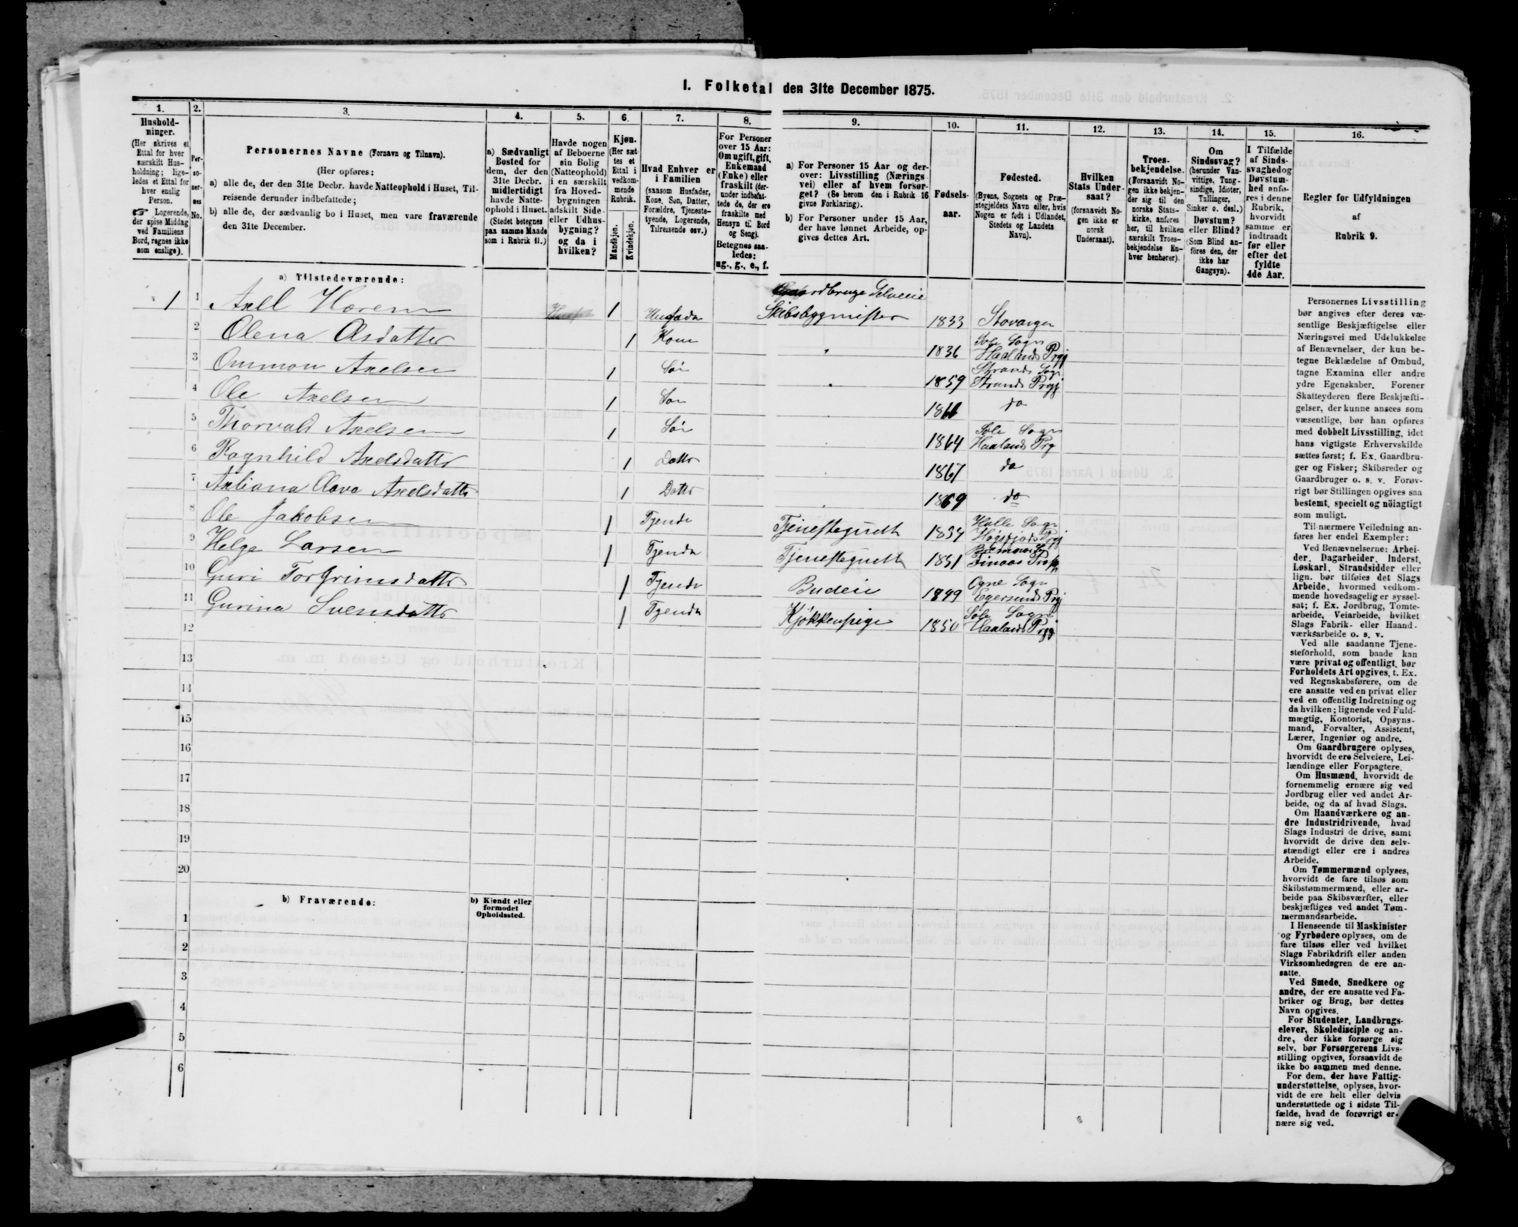 1. Folketal den 31te December 1875.
1.
Hushold-
ninger.
(Her skrives et
Ettal for hver
særskilt Hus-
holdning; lige-
ledes et Ettal for
hver enslig
Person.
☞ Logerende,
der spise Middag
ved Familiens
Bord, regnes ikke
som enslige).
2.
Per-
so-
ner-
nes
No.
3.
Personernes Navne (Fornavn og Tilnavn).
(Her opføres:
a) alle de, der den 31te Decbr. havde Natteophold i Huset, Til-
reisende derunder indbefattede;
b) alle de, der sædvanlig bo i Huset, men vare fraværende
den 31te December.
4.
a) Sædvanligt
Bosted for
dem, der den
31te Decbr.
midlertidigt
havde Natte-
ophold i Huset.
(Stedet betegnes
paa samme Maade
som i Rubrik 11.)
5.
Havde nogen
af Beboerne
sin Bolig
(Natteophold)
i en særskilt
fra Hoved-
bygningen
adskilt Side-
eller Udhus-
bygning?
og da i
hvilken?
6.
Kjøn.
(Her sæt-
tes et
Ettal i
vedkom-
mende
Rubrik.
Mandkjøn.
Kvindekjøn.
7.
Hvad Enhver er
i Familien
(saasom Husfader,
Kone, Søn, Datter,
Forældre, Tjeneste-
tyende, Logerende,
Tilreisende osv.)
8.
For Personer
over 15 Aar:
Om ugift, gift,
Enkemand
(Enke) eller
fraskilt (der-
under indbefat-
tede de, der ere
fraskilte med
Hensyn til Bord
og Seng).
Betegnes saa-
ledes:
ug., g., e., f.
9.
a) For Personer 15 Aar og der-
over: Livsstilling (Nærings-
vei) eller af hvem forsør-
get? (Se herom den i Rubrik 16
givne Forklaring).
b) For Personer under 15 Aar,
der have lønnet Arbeide, op-
gives dettes Art.
10.
Fødsels-
aar.
11.
Fødested.
(Byens, Sognets og Præ-
stegjeldets Navn eller, hvis
Nogen er født i Udlandet,
Stedets og Landets
Navn).
12.
Hvilken
Stats Under-
saat?
(forsaavidt No-
gen ikke er
norsk
Undersaat).
13.
Troes-
bekjendelse.
(Forsaavidt No-
gen ikke bekjen-
der sig til den
norske Stats-
kirke, anføres
her, til hvilken
særskilt Troes-
bekjendelse En-
hver henhører).
14.
Om
Sindssvag?
(herunder Van-
vittige, Tung-
sindige, Idioter,
Tullinger,
Sinker o. desl.)
Døvstum?
eller Blind?
(Som Blind an-
føres den, der
ikke har
Gangsyn).
15.
I Tilfælde
af Sinds-
svaghed og
Døvstum-
hed anfø-
res i denne
Rubrik,
hvorvidt
samme er
indtraadt
før eller
efter det
fyldte
4de Aar.
16.
Regler for Udfyldningen
af
Rubrik 9.
a) Tilstedeværende:
1 1 Axell Haren 1 Husfada Gaardbruger Selveier Skibsbygmester 1833 Stavanger
2 Olena Asdatter 1 Kone 1836 Sole Sogn Haalands Prgj
3 Ommon Axelsen 1 Søn 1859 Strands Sogn Strands Prgj
4 Ole Axelsen 1 Søn do
5 Thorvald Axelsen 1 Søn 1864 Sole Sogn Haalands Prg
6 Ragnhild Axelsdatter 1 Datter 1867 do
7 Axeldatter 1 Datter 1869 do
8 Ole Jakobsen 1 Tjende Tjenestegudt 1834 Halle Sogn Høgsfjords Prgj
9 Helge Larsen 1 Tjende Tjenestegudt 1851 Finaas Prgj
10 Guri Torgrimsdatter 1 Tjende Budeie 1849 Ogne Sogn Egersunds Prgj
11 Gurina Svensdatter 1 Tjende Kjøkkenpige 1850 Sole Sogn Haalands Prgj
12
13
14
15
16
17
18
19
20
b) Fraværende:
b) Kjendt eller
formodet
Opholdssted.
1
2
3
4
5
6
Personernes Livsstilling
bør angives efter deres væ-
sentlige Beskjæftigelse eller
Næringsvei med Udelukkelse
af Benævnelser, der kun be-
tegne Beklædelse af Ombud,
tagne Examina eller andre
ydre Egenskaber. Forener
Skatteyderen flere Beskjæfti-
gelser, der kunne ansees som
væsentlige, bør han opføres
med dobbelt Livsstilling, idet
hans vigtigste Erhvervskilde
sættes først; f. Ex. Gaardbru-
ger og Fisker; Skibsreder og
Gaardbruger o. s. v. Forøv-
rigt bør Stillingen opgives saa
bestemt, specielt og nøiagtigt
som muligt.
Til nærmere Veiledning an-
føres her endel Exempler:
Ved Benævnelserne: Arbei-
der, Dagarbeider, Inderst,
Løskarl, Strandsidder eller
lign. bør tilføies det Slags
Arbeide, hvormed vedkom-
mende hovedsagelig er syssel-
sat; f. Ex. Jordbrug, Tomte-
arbeide, Veiarbeide, hvilket
Slags Fabrik- eller Haand-
værksarbeide o. s. v.
Ved alle saadanne Tjene-
steforhold, som baade kan
være privat og offentligt, bør
Forholdets Art opgives, t. Ex.
ved Regnskabsførere, om de
ere ansatte ved en privat eller
ved en offentlig Indretning og
da hvilken; lignende ved Fuld-
mægtig, Kontorist, Opsyns-
mand, Forvalter, Assistent,
Lærer, Ingeniør og andre.
Om Gaardbrugere oplyses,
hvorvidt de ere Selveiere, Lei-
lændinge eller Forpagtere.
Om Husmænd, hvorvidt de
fornemmelig ernære sig ved
Jordbrug eller ved andet Ar-
beide, og da af hvad Slags.
Om Haandværkere og an-
dre Industridrivende, hvad
Slags Industri de drive, samt
hvorvidt de drive den selv-
stændigt eller ere i andres
Arbeide.
Om Tømmermænd oplyses,
hvorvidt de fare tilsøs som
Skibstømmermænd, eller ar-
beide paa Skibsværfter, eller
beskjæftiges ved andet Tøm-
mermandsarbeide.
I Henseende til Maskinister
og Fyrbødere oplyses, om de
fare tilsøs eller ved hvilket
Slags Fabrikdrift eller anden
Virksomhedsgren de ere an-
satte.
Ved Smede, Snedkere og
andre, der ere ansatte ved Fa-
briker og Brug, bør dettes
Navn opgives.
For Studenter, Landbrugs-
elever, Skoledisciple og an-
dre, der ikke forsørge sig
selv, bør Forsørgerens Livs-
stilling opgives, forsaavidt de
ikke bo sammen med denne.
For dem, der have Fattig-
understøttelse, oplyses, hvor-
vidt de ere helt eller delvis
understøttede og i sidste Til-
fælde, hvad de forøvrigt er-
nære sig ved.